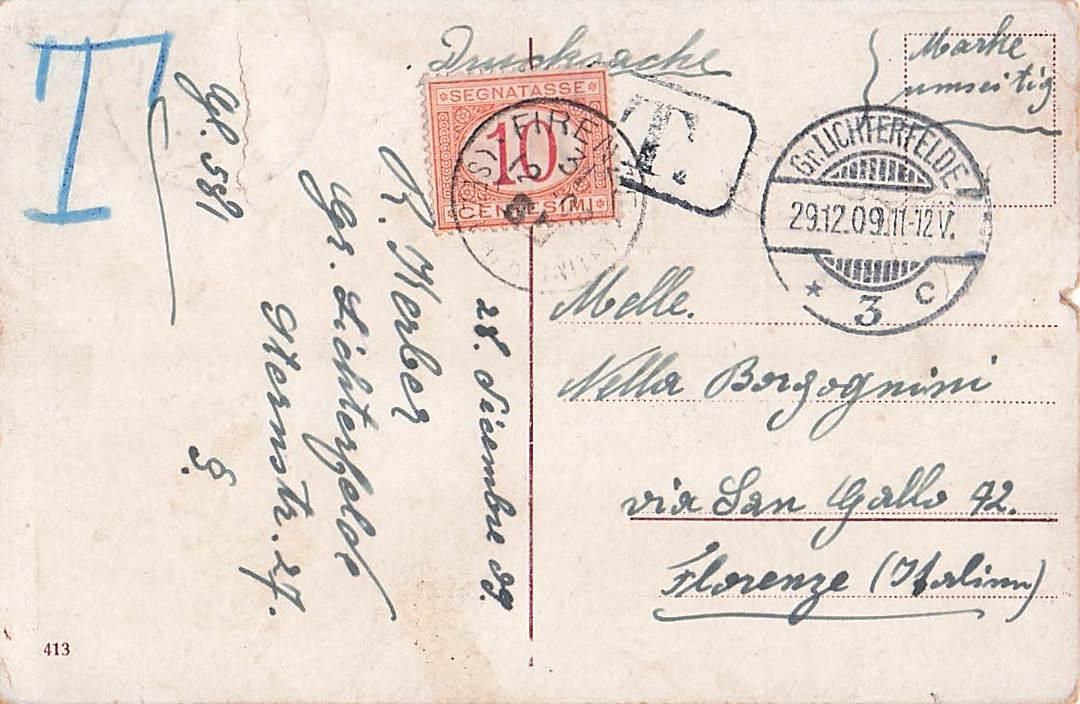 Drucksache
Marke
umseitig
T
T.
SEGNATASSE
10
CENTESIMI
FIRENZE
Gr. LICHTERFELDE
29.12.09.11-12V.
* 3 c
Melle.
Nella Borgognini
via San Gallo 42.
Florenze (Italien)
28. Dicembre 09.
R. Kerber
Gr. Lichterfelde
Sternstr. 27.
413